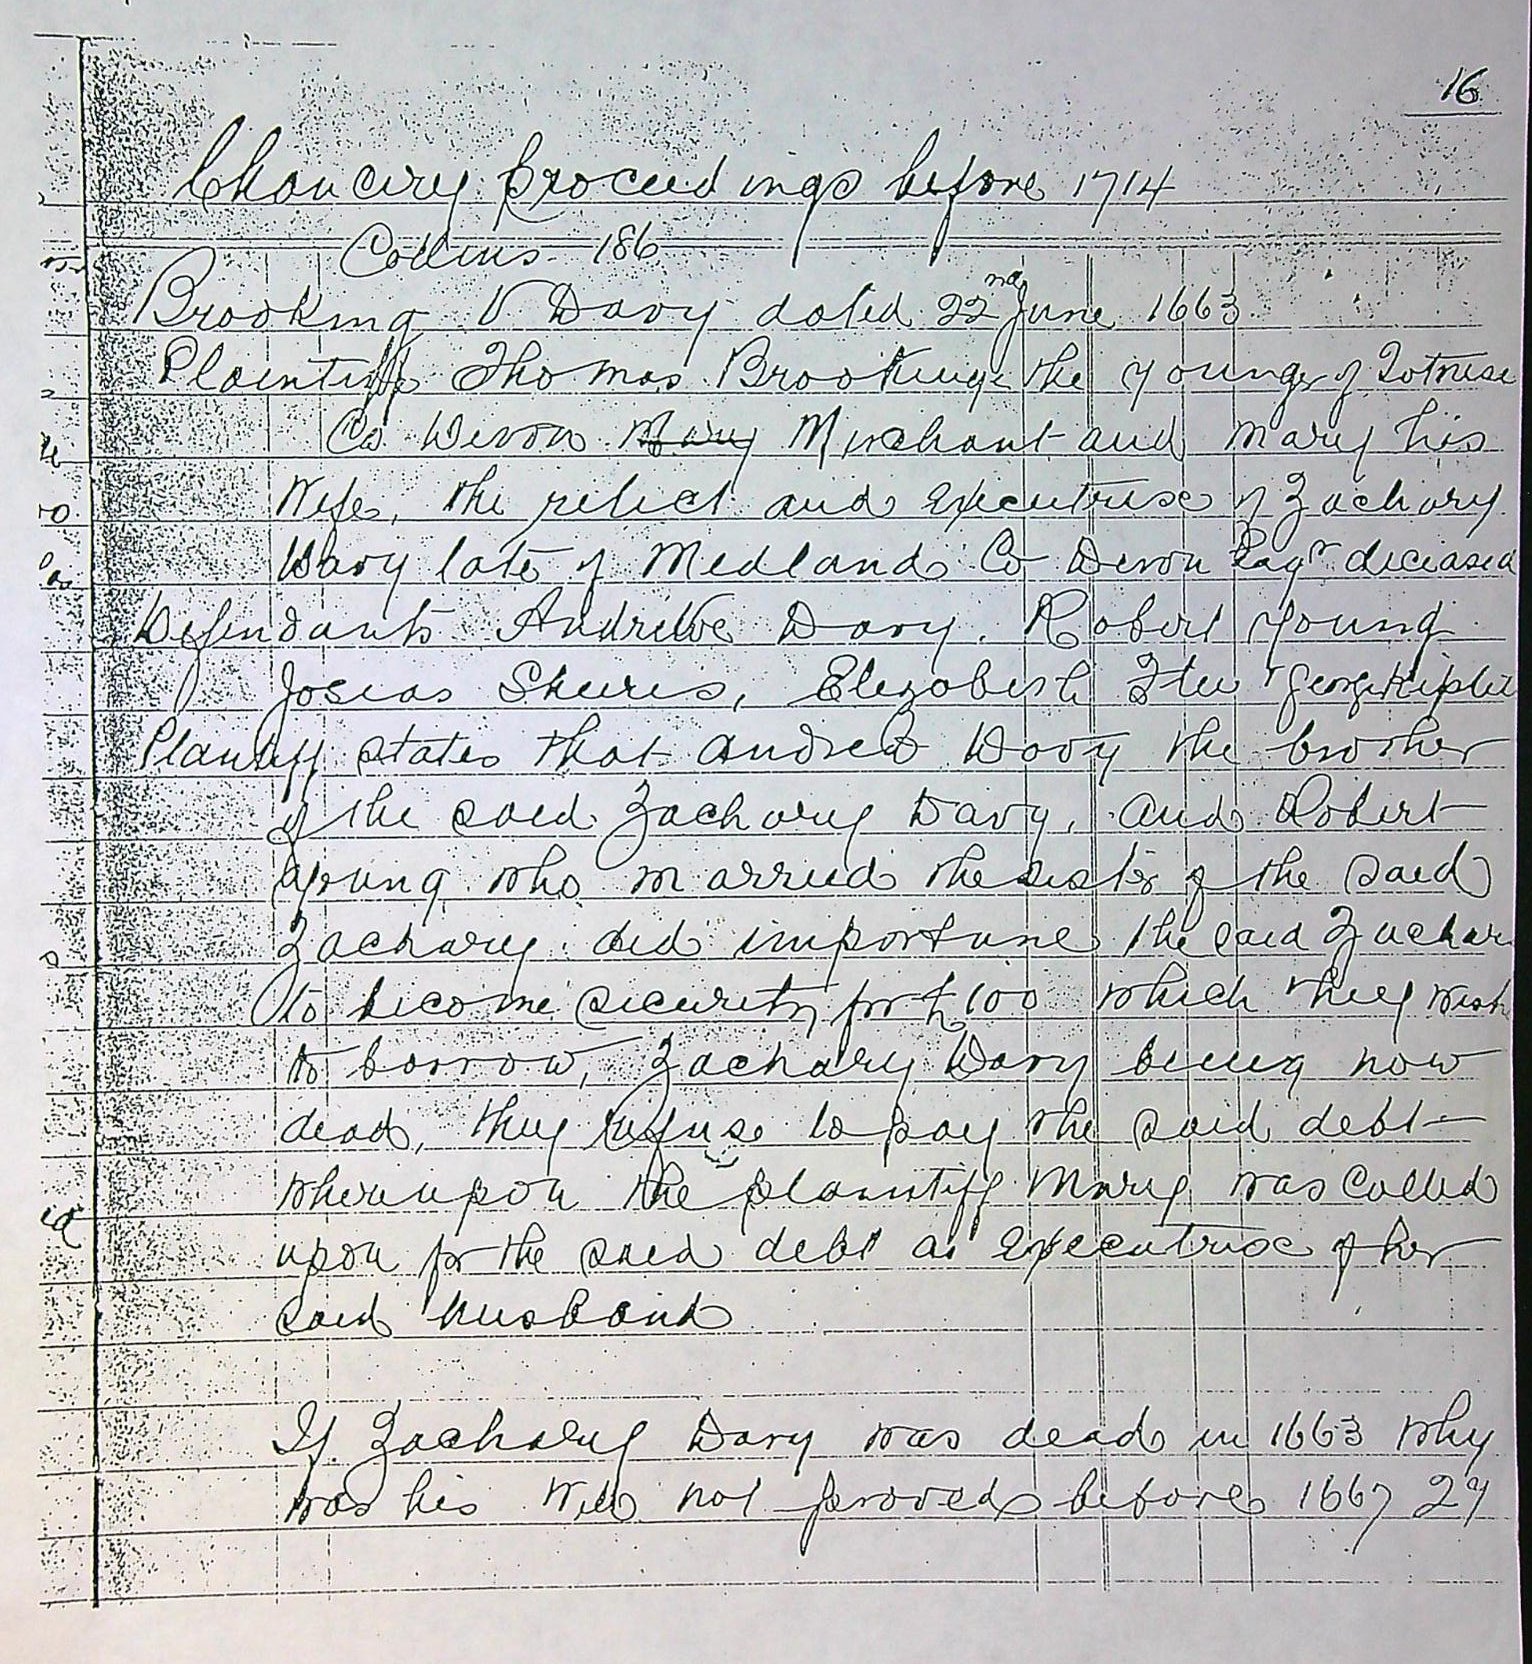 16
Chancery Proceedings before 1714
Collins 186
Brooking V Davy dated 22nd June 1663
Plaintiffs Thomas Brooking the younger of Totness
Co Devon Mary Merchant and Mary his
Wife, the relict and Executrix of Zachary
Davy late of Medland Co Devon Esqr deceased
Defendants Andrewe Davy. Robert Young
Josias Sheres, Elizabeth &
Plantiff states that Andrew Davy the brother
of the said Zachary Davy, and Robert
young who married the sister of the said
Zachary did importune the said Zachar
to become security for £100 which they wish
to borrow, Zachary Davy being now
dead, they refuse to pay the said debt
whereupon the plaintiff Mary was called
upon for the said debt as Executrix of her
said husband
If Zachary Davy was dead in 1663 why
was his Will not proved before 1667